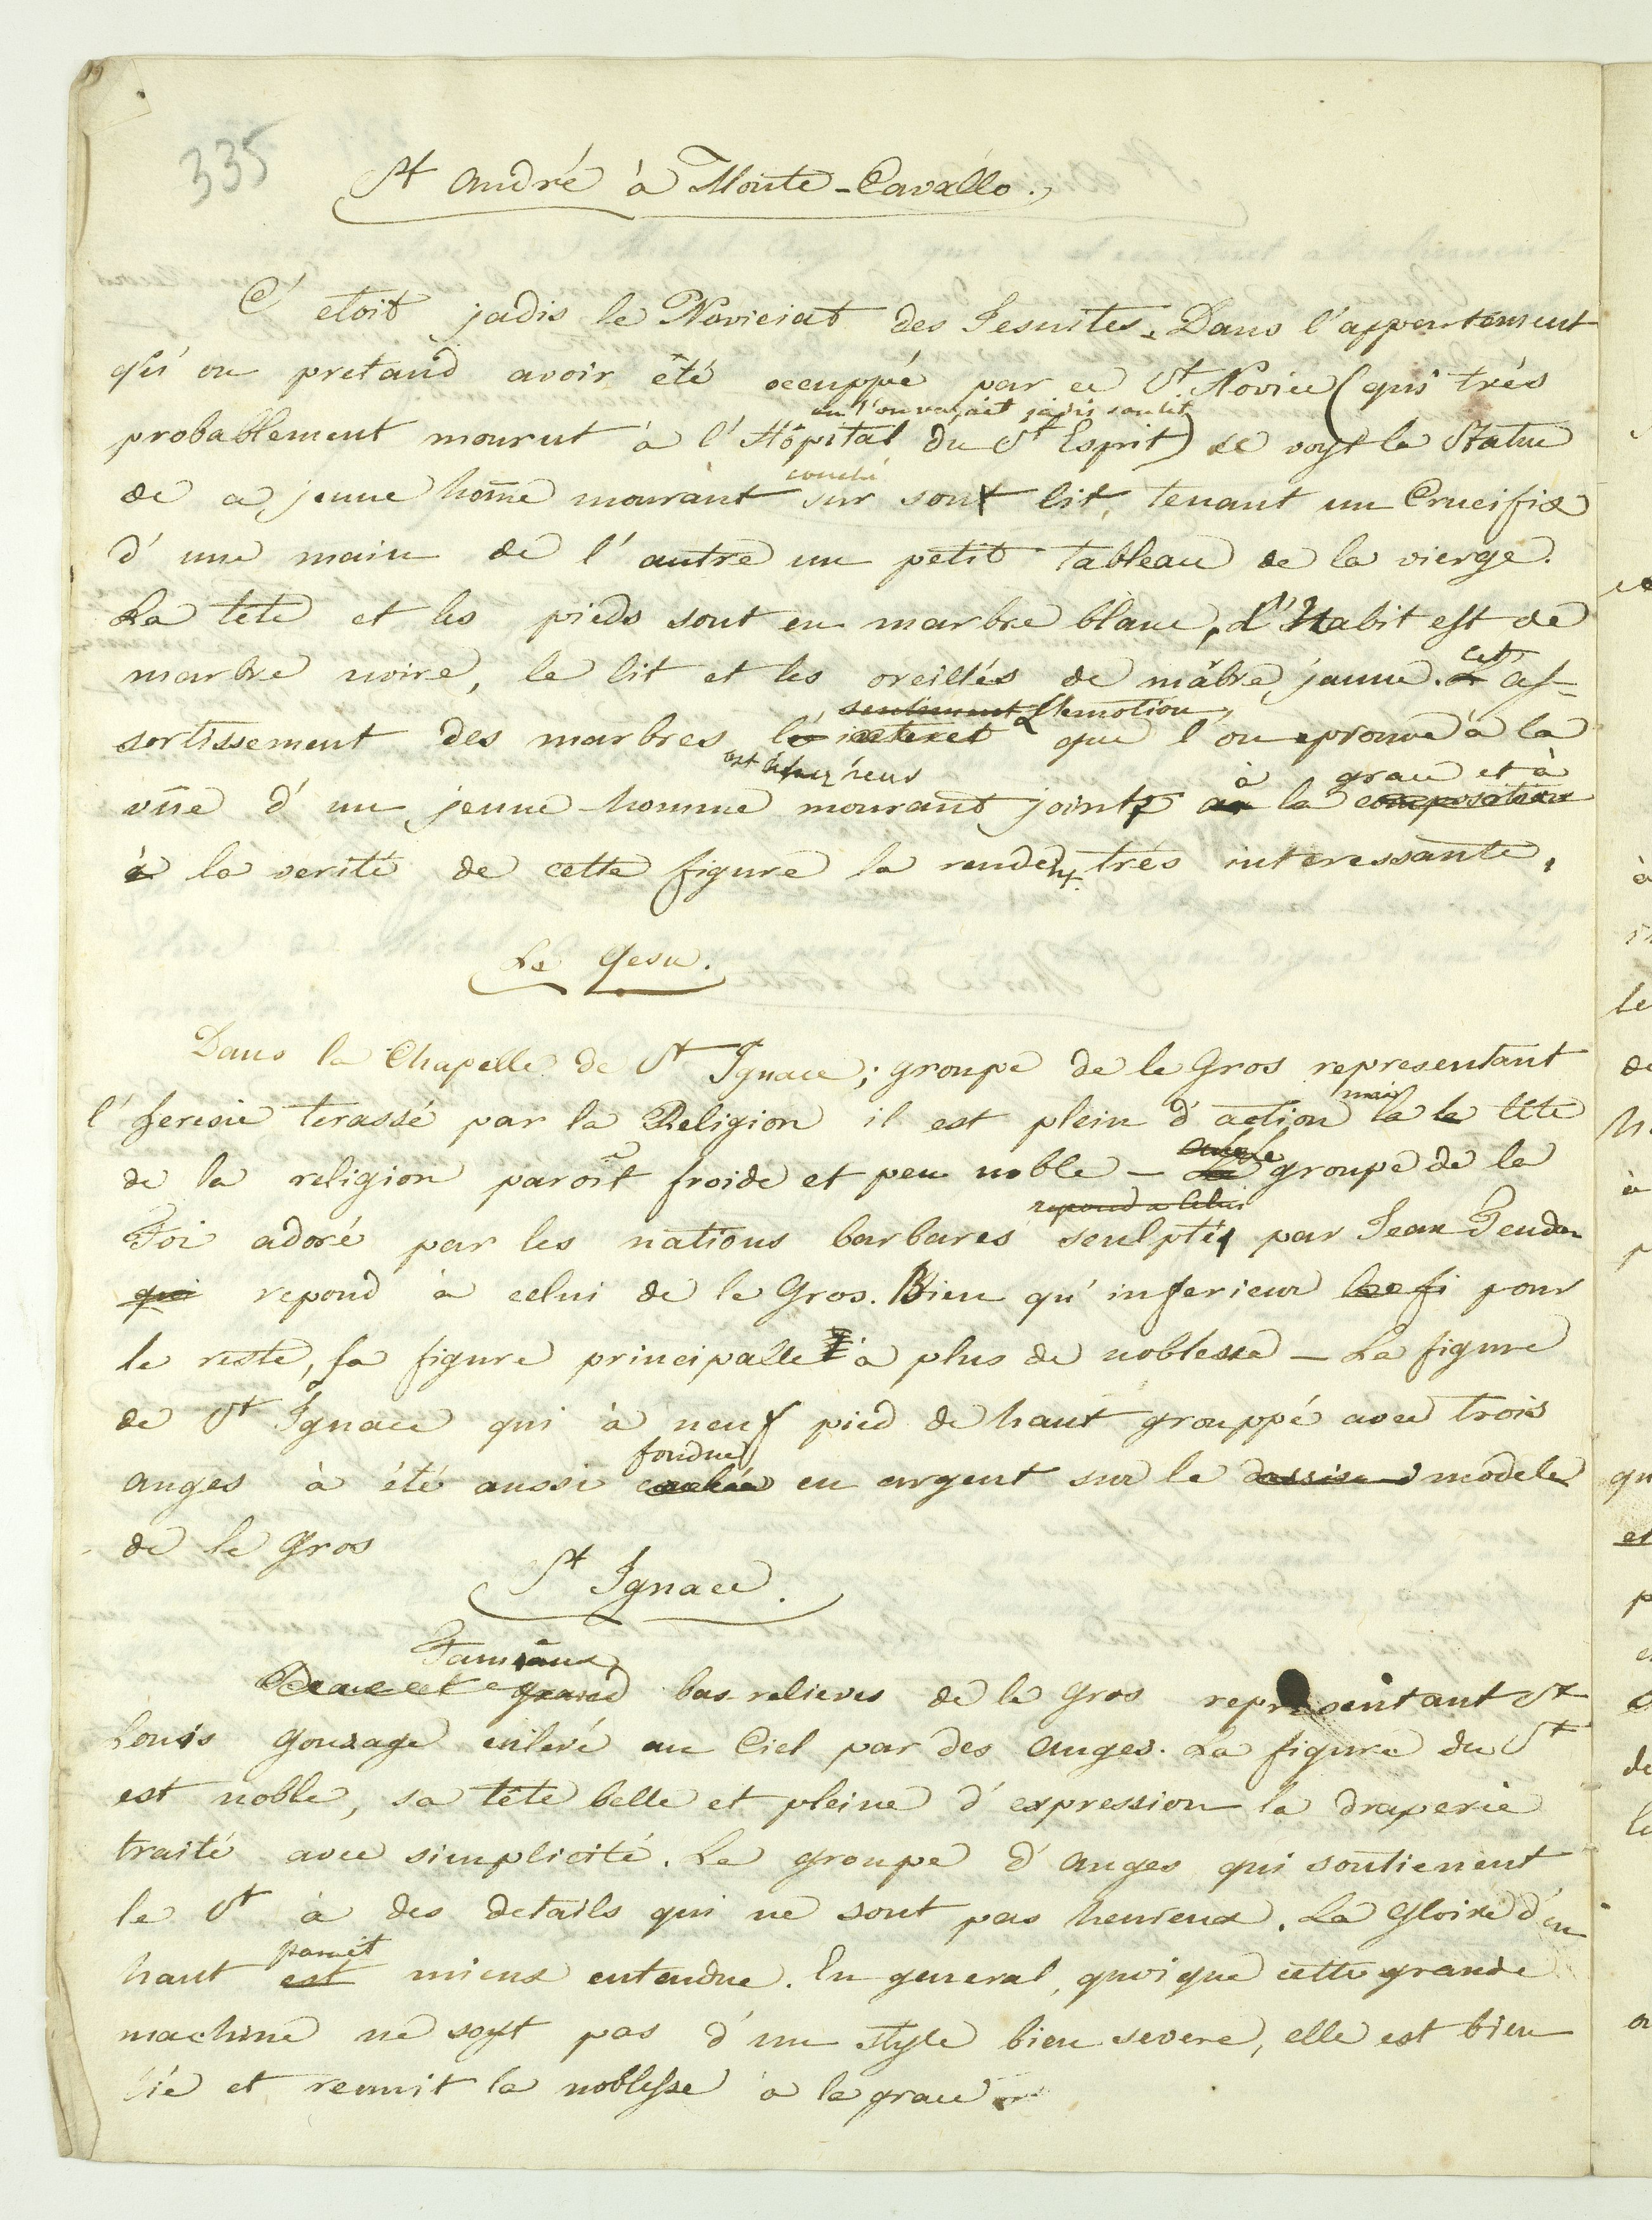 335
St André à Monte-Cavallo.
C'etoit jadis le Noviciat des Jesuites. Dans l'appartement
qu'on pretand avoir été occuppé par ce St Novice (qui très
ou l'on voyait jadis son lit
probablement mourut à l'Hôpital du St Esprit) se voyt la Statue
couché
de ce jeune home mourant sur son lit, tenant un Crucifix
d'une main de l'autre un petit tableau de la vierge.
La tete et les pieds sont en marbre blanc, l'Habit est de
cet
marbre noire, le lit et les oreillés de mâbre jaune. L'as-
sentiment l'emotion
sortissement des marbres interet que l'on eprouve à la
est heureux
à grace et à
vüe d'un jeune homme mourant joint la composition
à la verité de cette figure la rendent très interessante.
Le Gesu.
Dans la Chapelle de St Ignace; groupe de le Gros representant
mais
l'heresie terassé par la Religion il est plein d'action la le tête
de la religion paroît froide et peu noble – Le groupe de la
repond a celui
Foi adoré par les nations barbares sculpté par Jean Teudon
qui repond à celui de le Gros. Bien qu'inferieur pour
le reste, sa figure principalle à plus de noblesse – La figure
de St Ignace qui à neuf pied de haut grouppé avec trois
fondue
anges à été aussi en argent sur le dessin modele
de le Gros
St Ignace.
Fameux
grand bas-relieves de le Gros representant St
Louis Gonzage enlevé au Ciel par des anges. La figure du St
est noble, sa tête belle et pleine d'expression la draperie
traité avec simplicité. Le groupe d'anges qui soutienent
le St à des details qui ne sont pas heureux. La Gloire d'en
paroit
haut est mieux entendue. En general, quoique cette grande
machine ne soyt pas d'un style bien severe, elle est bien
lié et reunit la noblesse a la grace